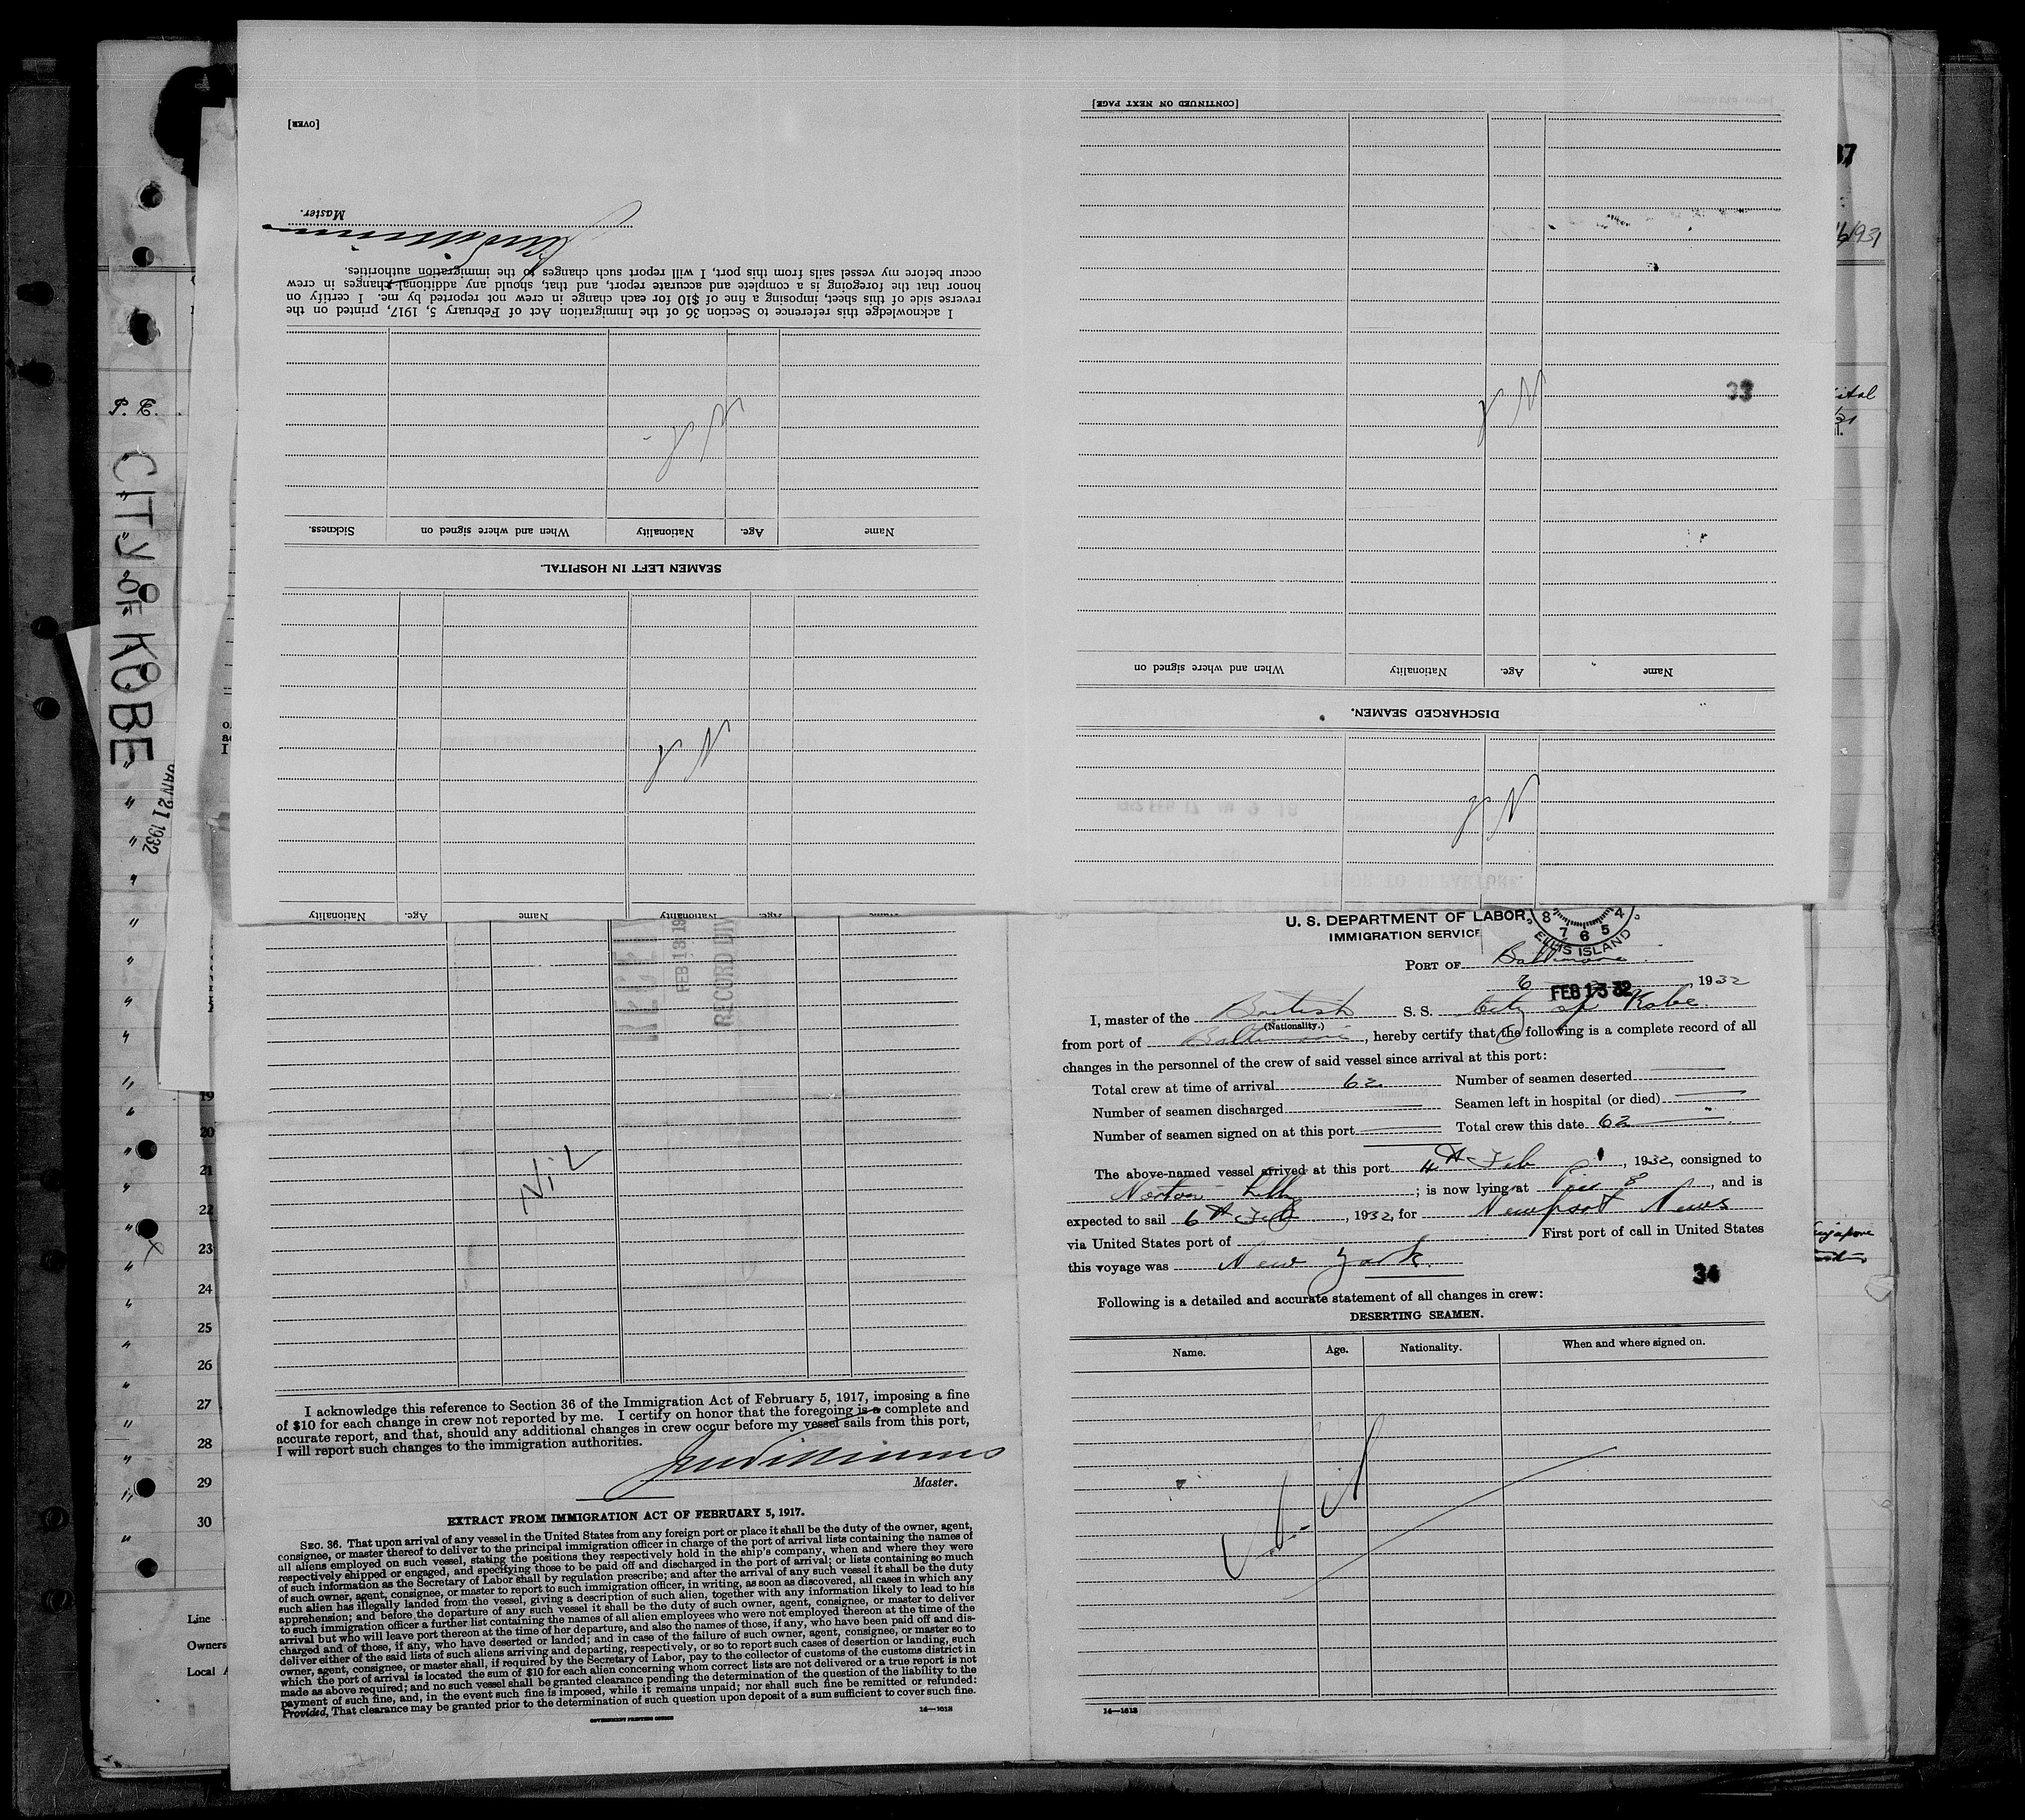 [OVER]
Master.
I acknowledge this reference to Section 36 of the Immigration Act of February 5, 1917, printed on the
reverse side of this sheet, imposing a fine of $10 for each change in crew not reported by me. I certify on
honor that the foregoing is a complete and accurate report, and that, should any additional changes in crew
occur before my vessel sails from this port, I will report such changes to the immigration authorities.
Name Age. Nationality When and where signed on Sickness.
SEAMEN LEFT IN HOSPITAL.
Name Age. Nationality Name Age. Nationality
[CONTINUED ON NEXT PAGE]
33
Name Age. Nationality When and where signed on
DISCHARGED SEAMEN.
P. E.
CITY OF KOBE
JAN 21 1932
37
1931
19
20
21
22
23
24
25
26
27
28
29
30
Line
Owners
Local
FEB 13 19
RECORD DIV
Nil
I acknowledge this reference to Section 36 of the Immigration Act of February 5, 1917, imposing a fine
of $10 for each change in crew not reported by me. I certify on honor that the foregoing is a complete and
accurate report, and that, should any additional changes in crew occur before my vessel sails from this port,
I will report such changes to the immigration authorities.
Master.
EXTRACT FROM IMMIGRATION ACT OF FEBRUARY 5, 1917.
SEC. 36. That upon arrival of any vessel in the United States from any foreign port or place it shall be the duty of the owner, agent,
consignee, or master thereof to deliver to the principal immigration officer in charge of the port of arrival lists containing the names of
all aliens employed on such vessel, stating the positions they respectively hold in the ship's company, when and where they were
respectively shipped or engaged, and specifying those to be paid off and discharged in the port of arrival; or lists containing so much
of such information as the Secretary of Labor shall by regulation prescribe; and after the arrival of any such vessel it shall be the duty
of such owner, agent, consignee, or master to report to such immigration officer, in writing, as soon as discovered, all cases in which any
such alien has illegally landed from the vessel, giving a description of such alien, together with any information likely to lead to his
apprehension; and before the departure of any such vessel it shall be the duty of such owner, agent, consignee, or master to deliver
to such immigration officer a further list containing the names of all alien employees who were not employed thereon at the time of the
arrival but who will leave port thereon at the time of her departure, and also the names of those, if any, who have been paid off and dis-
charged and of those, if any, who have deserted or landed; and in case of the failure of such owner, agent, consignee, or master so to
deliver either of the said lists of such aliens arriving and departing, respectively, or so to report such cases of desertion or landing, such
owner, agent, consignee, or master shall, if required by the Secretary of Labor, pay to the collector of customs of the customs district in
which the port of arrival is located the sum of $10 for each alien concerning whom correct lists are not delivered or a true report is not
made as above required; and no such vessel shall be granted clearance pending the determination of the question of the liability to the
payment of such fine, and, in the event such fine is imposed, while it remains unpaid; nor shall such fine be remitted or refunded:
Provided, That clearance may be granted prior to the determination of such question upon deposit of a sum sufficient to cover such fine.
GOVERNMENT PRINTING OFFICE 14—1613
U. S. DEPARTMENT OF LABOR
IMMIGRATION SERVICE
8 7 6 5 4
ELLIS ISLAND
PORT OF Baltimore
6 FEB 13 32, 1932
I, master of the British S. S. City of Kobe
(Nationality.)
from port of Baltimore, hereby certify that the following is a complete record of all
changes in the personnel of the crew of said vessel since arrival at this port:
Total crew at time of arrival 62 Number of seamen deserted
Number of seamen discharged Seamen left in hospital (or died)
Number of seamen signed on at this port Total crew this date 62
The above-named vessel arrived at this port 4th Feb, 1932, consigned to
Norton Lilly; is now lying at Pier 8, and is
expected to sail 6th Feb, 1932, for Newport News
via United States port of First port of call in United States
this voyage was New York.
34
Following is a detailed and accurate statement of all changes in crew:
DESERTING SEAMEN.
Name. Age. Nationality. When and where signed on.
Nil
14—1613